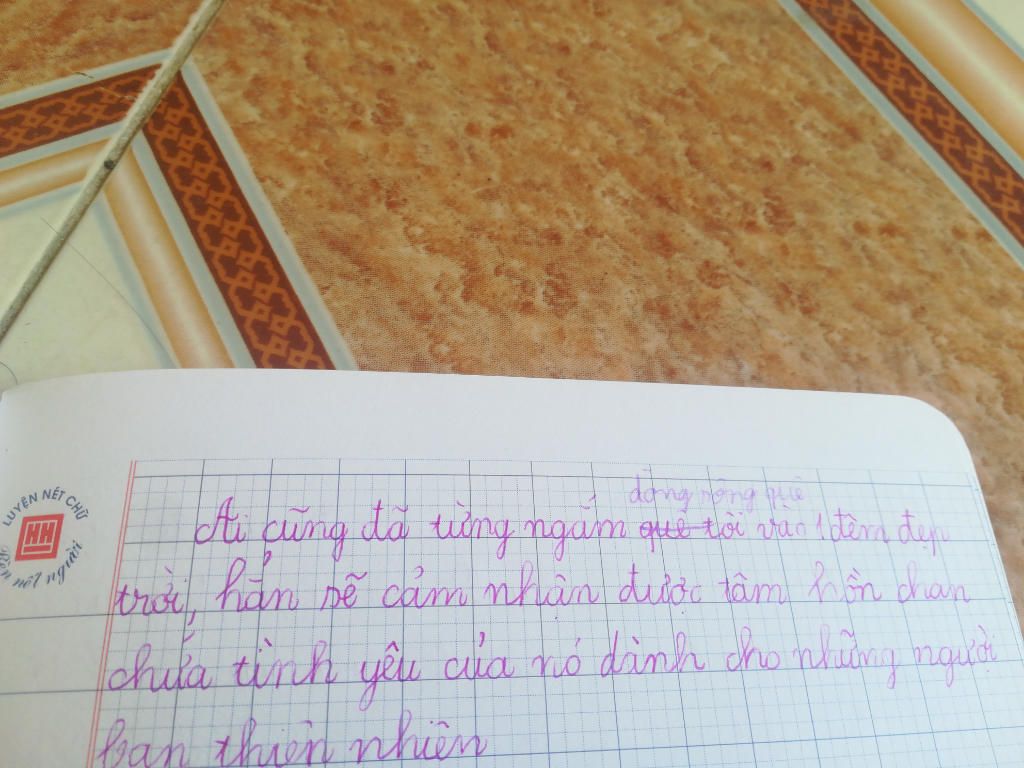 LUYỆN NÉT CHỮ
HH
nết người
dòng sông quê
Ai cũng đã từng ngắm quê tôi vào 1 đêm đẹp
trời, hẳn sẽ cảm nhận được tâm hồn chan
chứa tình yêu của nó dành cho những người
bạn thiên nhiên